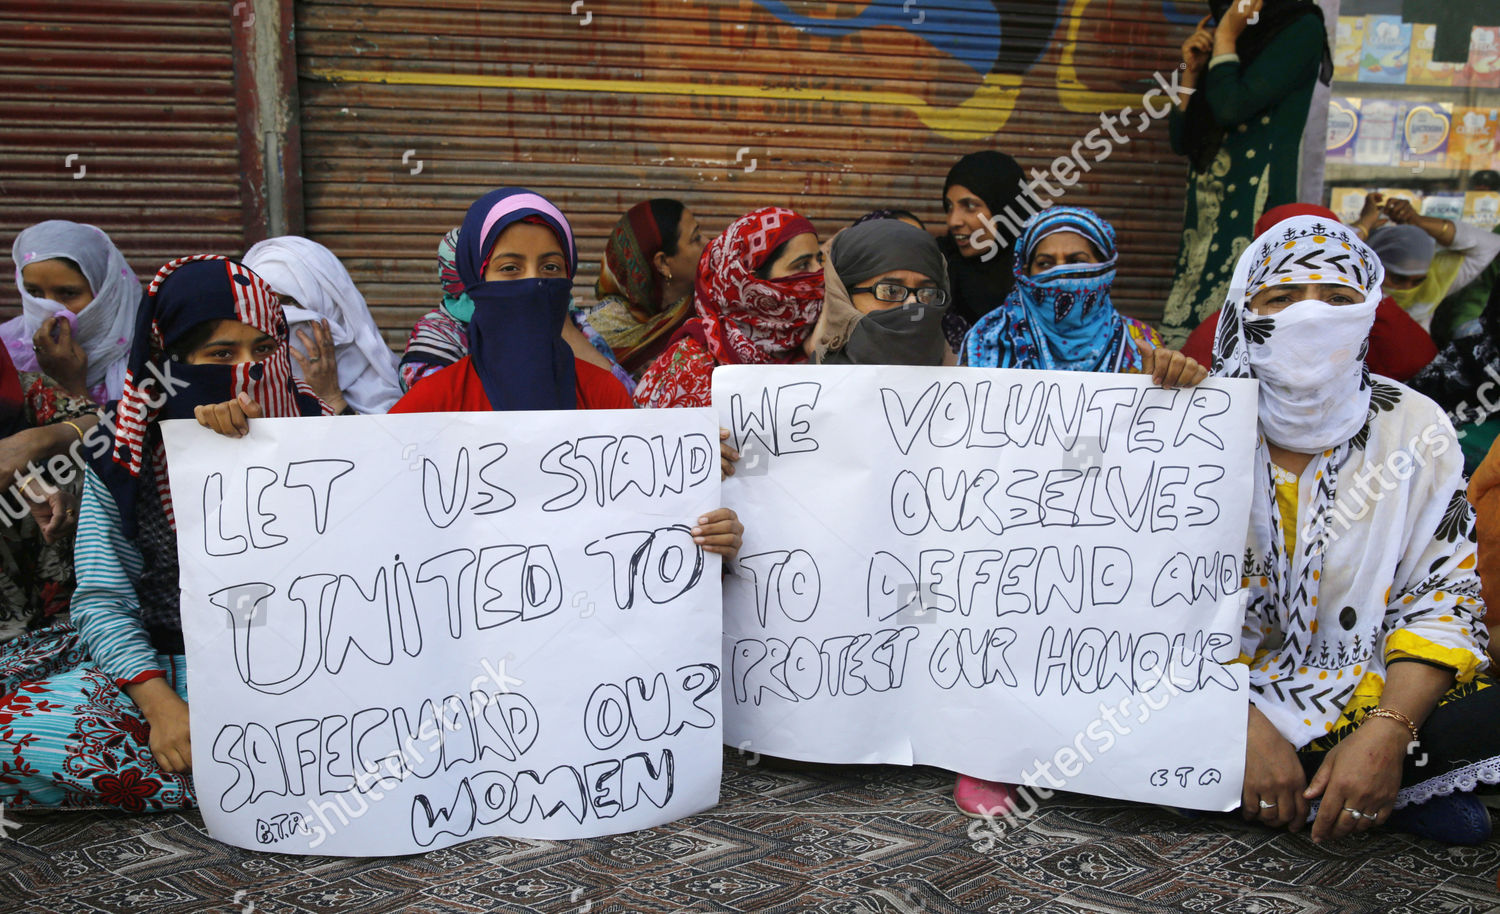 LET US STAND
UNITED TO
SAFEGUARD OUR
WOMEN
B.T.A
WE VOLUNTER
OURSELVES
TO DEFEND AND
PROTECT OUR HONOUR
B T A
shutterstock
shutterstock
shutterstock
shutterstock
shutterstock
shutterstock